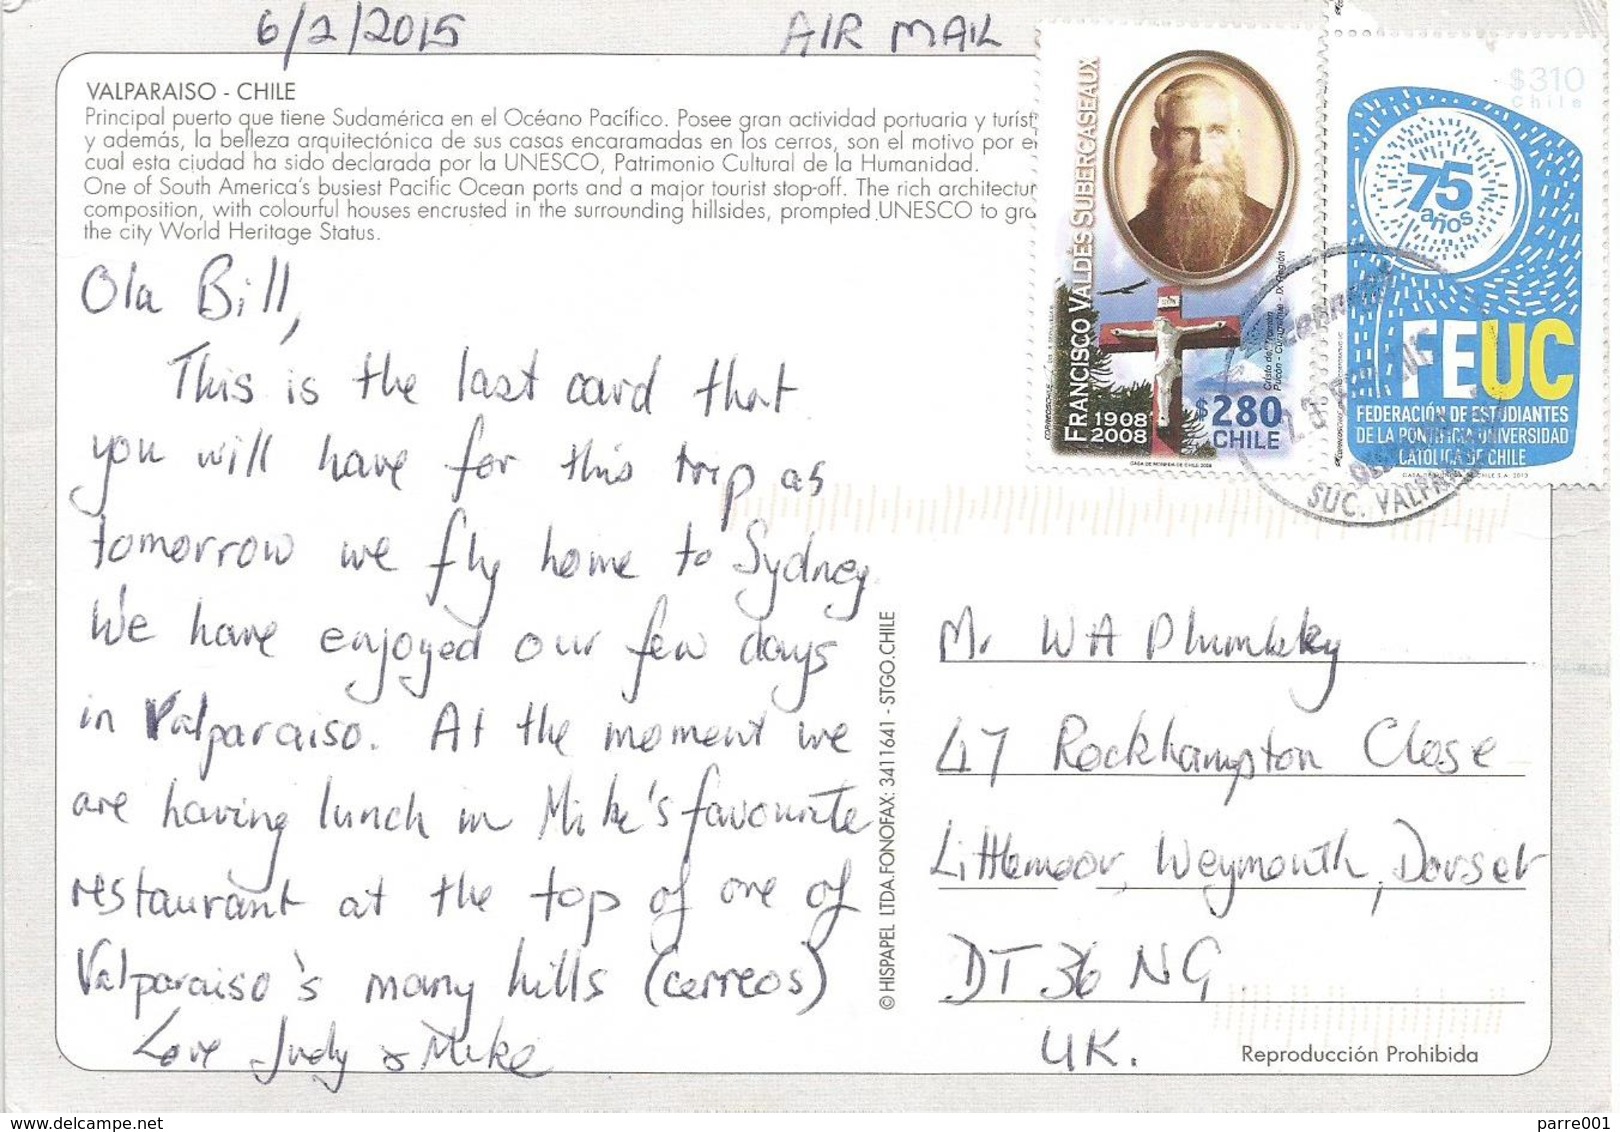 6/2/2015
AIR MAIL
VALPARAISO - CHILE
Principal puerto que tiene Sudamérica en el Océano Pacífico. Posee gran actividad portuaria y turíst
y además, la belleza arquitectónica de sus casas encaramadas en los cerros, son el motivo por el
cual esta ciudad ha sido declarada por la UNESCO, Patrimonio Cultural de la Humanidad.
One of South America's busiest Pacific Ocean ports and a major tourist stop-off. The rich architectur
composition, with colourful houses encrusted in the surrounding hillsides, prompted UNESCO to gra
the city World Heritage Status.
Ola Bill,
This is the last card that
you will have for this trip as
tomorrow we fly home to Sydney.
We have enjoyed our few days
in Valparaiso. At the moment we
are having lunch in Mike's favourite
restaurant at the top of one of
Valparaiso's many hills (cerreos)
Love Judy & Mike
© HISPAPEL LTDA.FONOFAX: 3411641 - STGO.CHILE
FRANCISCO VALDÉS SUBERCASEAUX
1908
2008
$280
CHILE
Cristo del Traitén
Pucón - Curarrehue - IX Región
CORREOSCHILE
CASA DE MONEDA DE CHILE 2008
$310
Chile
75
años
FEUC
FEDERACIÓN DE ESTUDIANTES
DE LA PONTIFICIA UNIVERSIDAD
CATÓLICA DE CHILE
CASA DE MONEDA DE CHILE S.A. 2013
SUC. VALPA
Mr WA Plumbley
47 Rockhampton Close
Littlemoor, Weymouth, Dorset
DT36 NG
UK.
Reproducción Prohibida
parre001